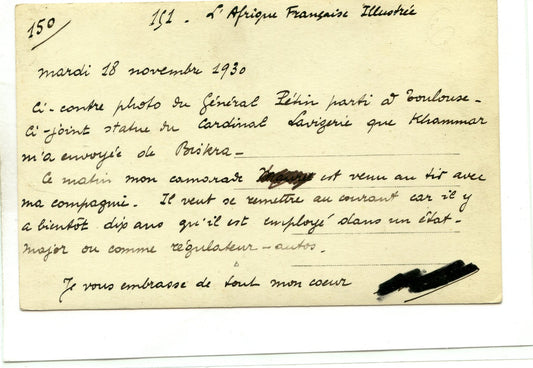 150
151. L'Afrique Française Illustrée
mardi 18 novembre 1930
Ci-contre photo du Général Pétin parti à Toulouse-
Ci-joint statue du Cardinal Lavigerie que Khammar
m'a envoyée de Biskra-
Ce matin mon camarade est venu au tir avec
ma compagnie. Il veut se remettre au courant car il y
a bientôt dix ans qu'il est employé dans un état-
major ou comme régulateur-autos.
Je vous embrasse de tout mon coeur